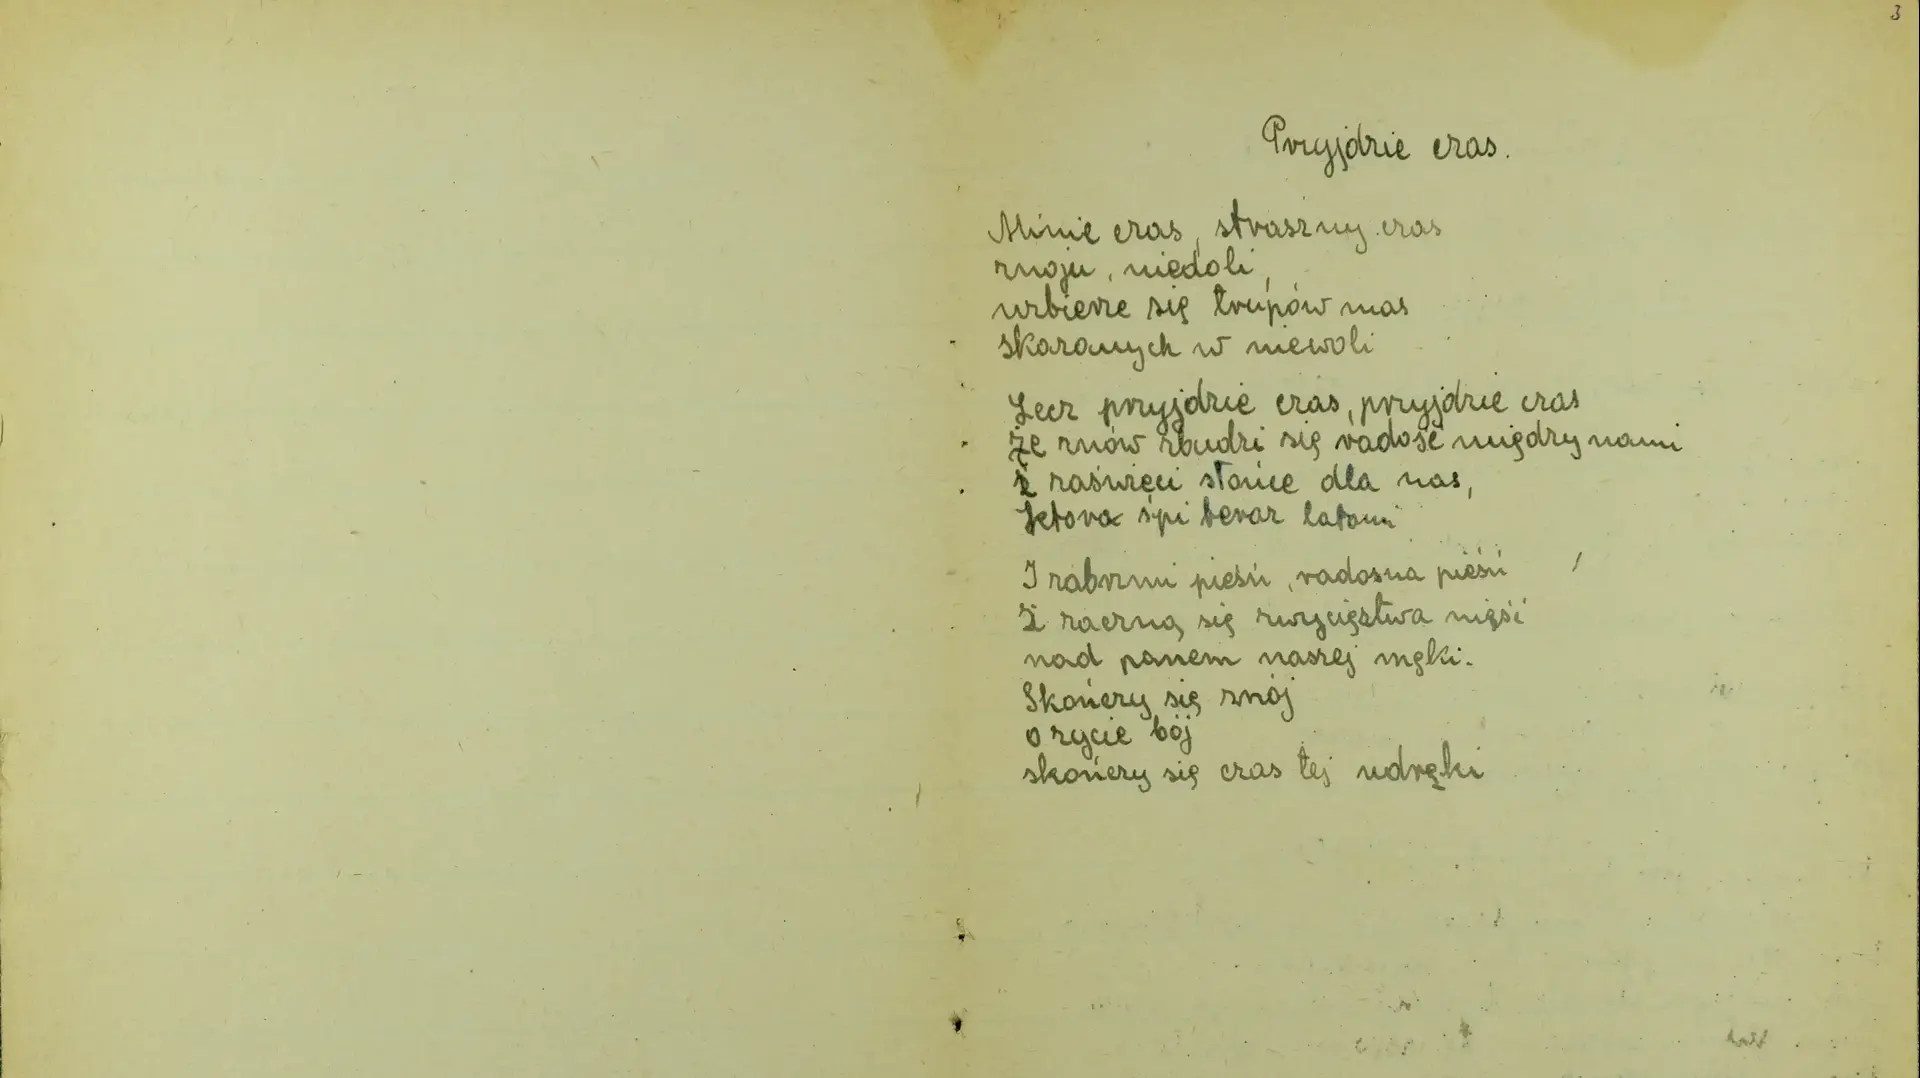 3
Przyjdzie czas.
Minie czas, straszny czas
znoju, niedoli,
uzbierze się trupów mas
skazanych w niewoli
Lecz przyjdzie czas, przyjdzie czas
Że znów zbudzi się radość między nami
I zaświeci słońce dla nas,
Która śpi teraz latami
I zabrzmi pieśń, radosna pieśń
I zaczną się zwycięstwa nieść
nad panem naszej męki.
Skończy się znój
o życie bój
skończy się czas tej udręki